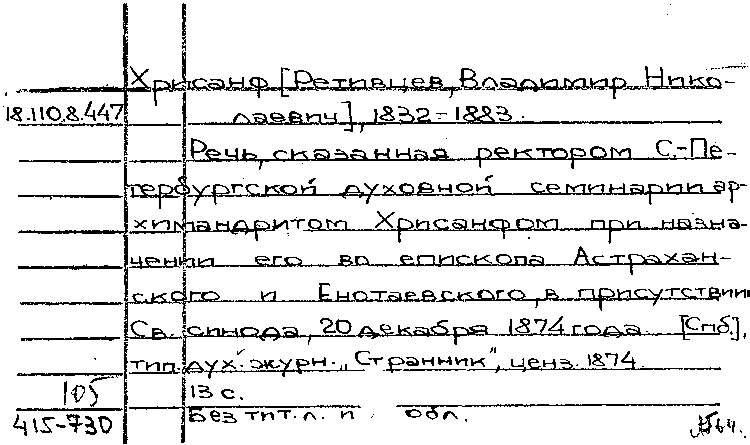 Хрисанф [Ретивцев, Владимир Нико-
18.110.8.447 лаевич], 1832-1883.
Речь, сказанная ректором С.-Пе-
тербургской духовной семинарии ар-
химандритом Хрисанфом при назна-
чении его во епископа Астрахан-
ского и Енотаевского, в присутствии
Св. синода, 20 декабря 1874 года. [Спб.],
тип. дух. журн. „Странник", ценз. 1874.
105 13 с.
415-730 Без тит. л. и обл.